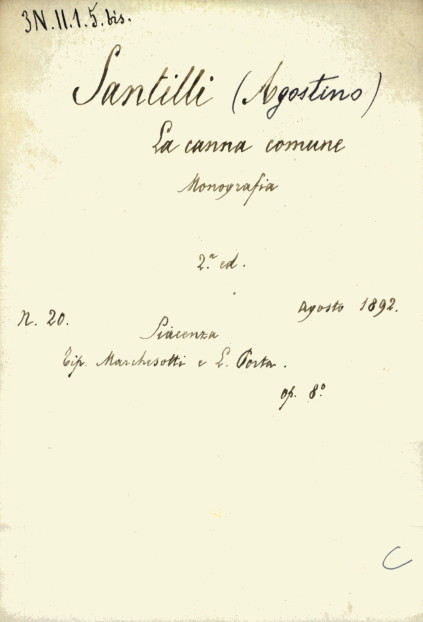 3N.II.1.5.bis.
Santilli (Agostino)
La canna comune
Monografia
2.a ed.
N. 20.
Agosto 1892.
Piacenza
Tip. Marchesotti e L. Porta.
op. 8°
C